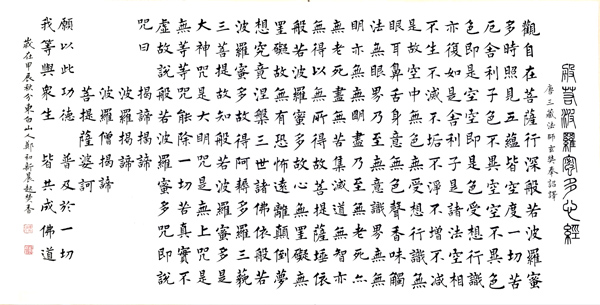 般若波羅蜜多心經
唐三藏法師玄奘奉詔譯
觀自在菩薩行深般若波羅蜜
多時照見五蘊皆空度一切苦
厄舍利子色不異空空不異色
色即是空空即是色受想行識
亦復如是舍利子是諸法空相
不生不滅不垢不淨不增不減
是故空中無色無受想行識無
眼耳鼻舌身意無色聲香味觸
法無眼界乃至無意識界無無
明亦無無明盡乃至無老死亦
無老死盡無苦集滅道無智亦
無得以無所得故菩提薩埵依
般若波羅蜜多故心無罣礙無
罣礙故無有恐怖遠離顛倒夢
想究竟涅槃三世諸佛依般若
波羅蜜多故得阿耨多羅三藐
三菩提故知般若波羅蜜多是
大神咒是大明咒是無上咒是
無等等咒能除一切苦真實不
虛故說般若波羅蜜多咒即說
咒曰
揭諦揭諦
波羅揭諦
波羅僧揭諦
菩提薩婆訶
願以此功德 普及於一切
我等與眾生 皆共成佛道
歲在甲辰秋分東白山人鄭初新晨起焚香